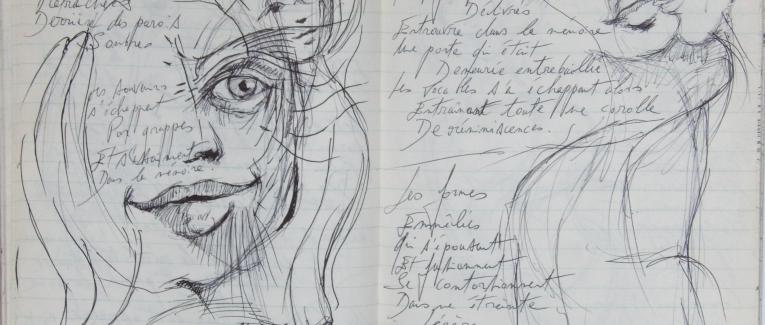 Derrière des parois
Sombres
Les souvenirs
s'échappent
Par grappes
Et s'
Dans la mémoire.
Délivrés
Entrouvre dans la mémoire
Une porte qui était
Demeurée entrebaillée
Les vocables s'en échappent alors
Entrainant toute une corolle
De réminiscences.
Les formes
Emmêlées
Qui s'épousent
Et fusionnent
Se contorsionnent
Dans une étreinte